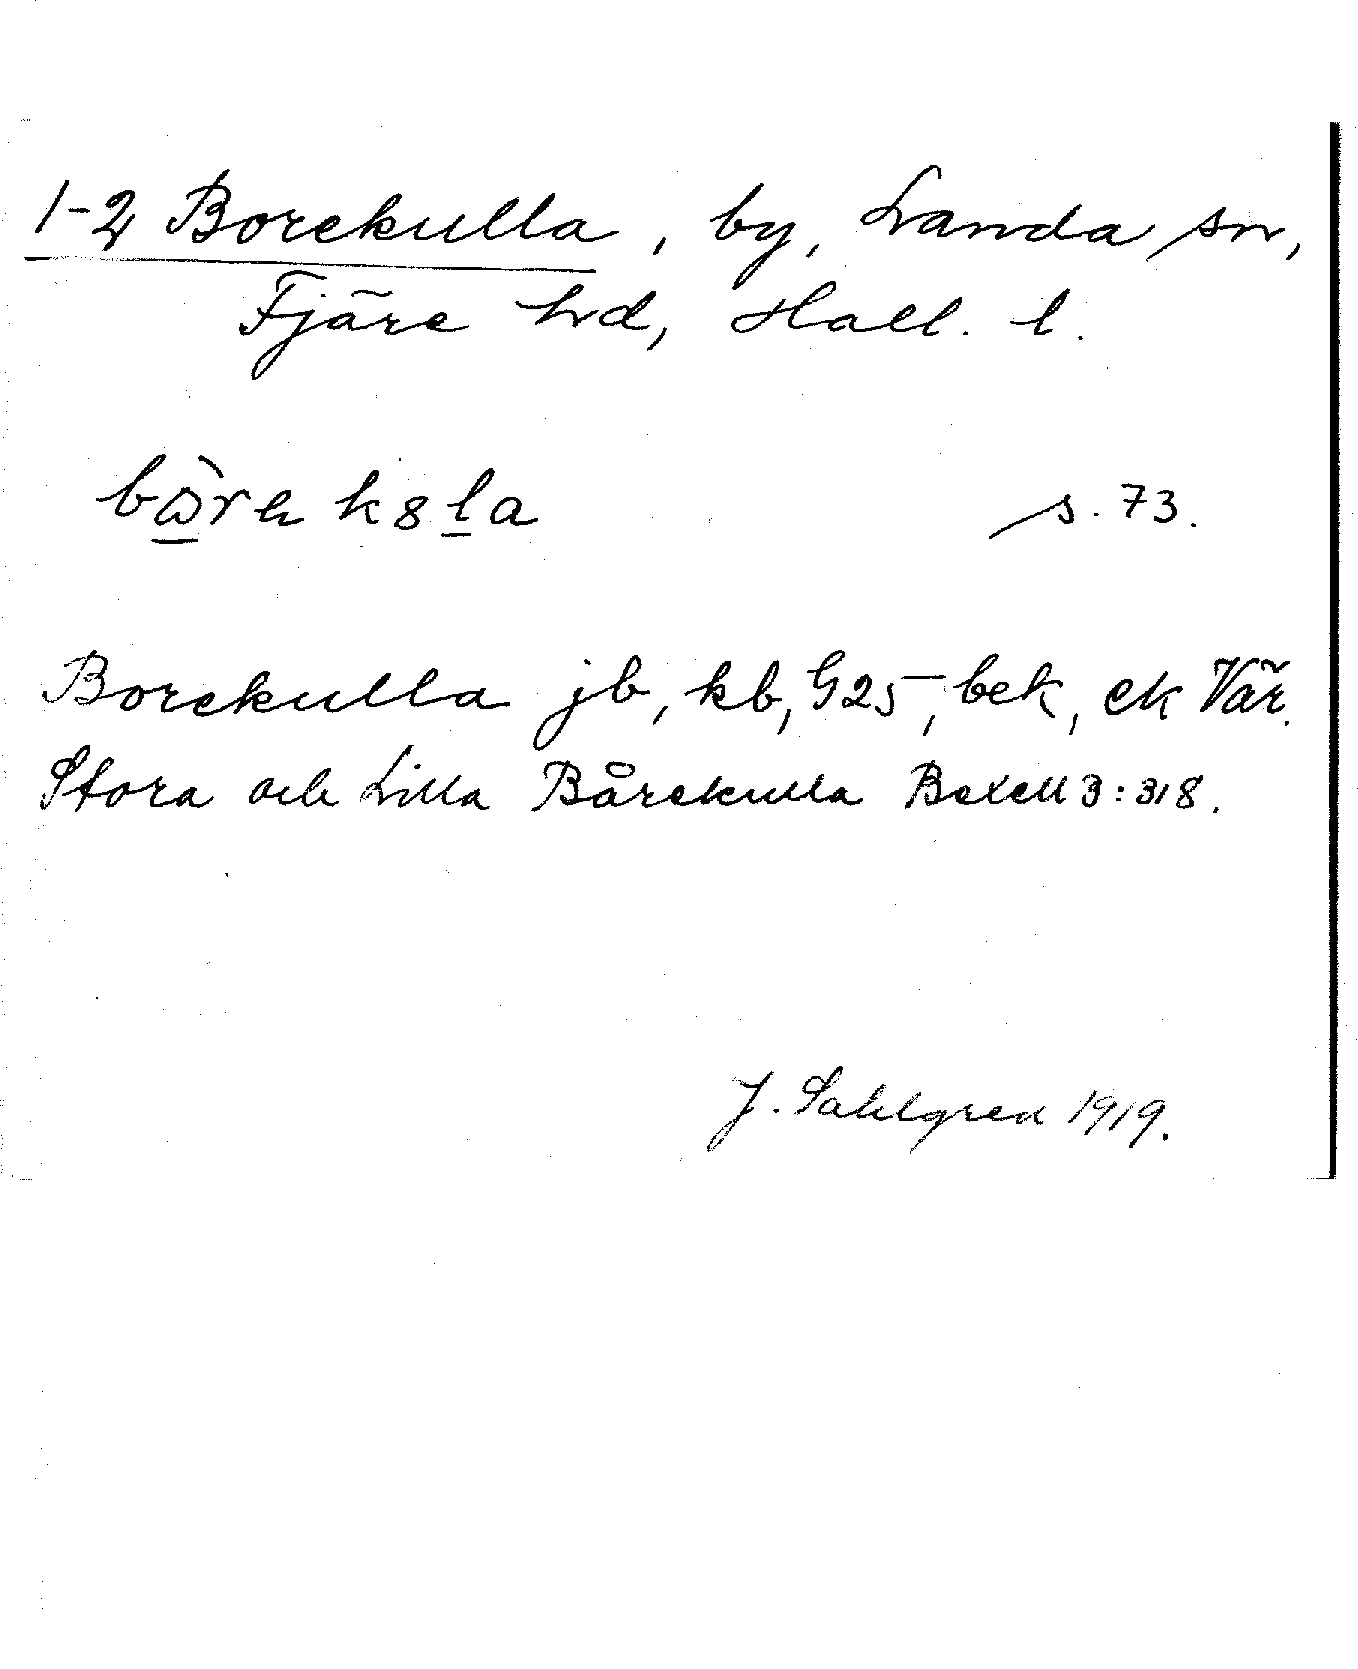 1-2 Borekulla, by, Landa sn,
Fjäre hd, Hall. l.
s. 73.
Borekulla jb, kb, G25, bek, ek Vär.
Stora och Lilla Bårekulla Bexell 3:318.
J. Sahlgren 1919.